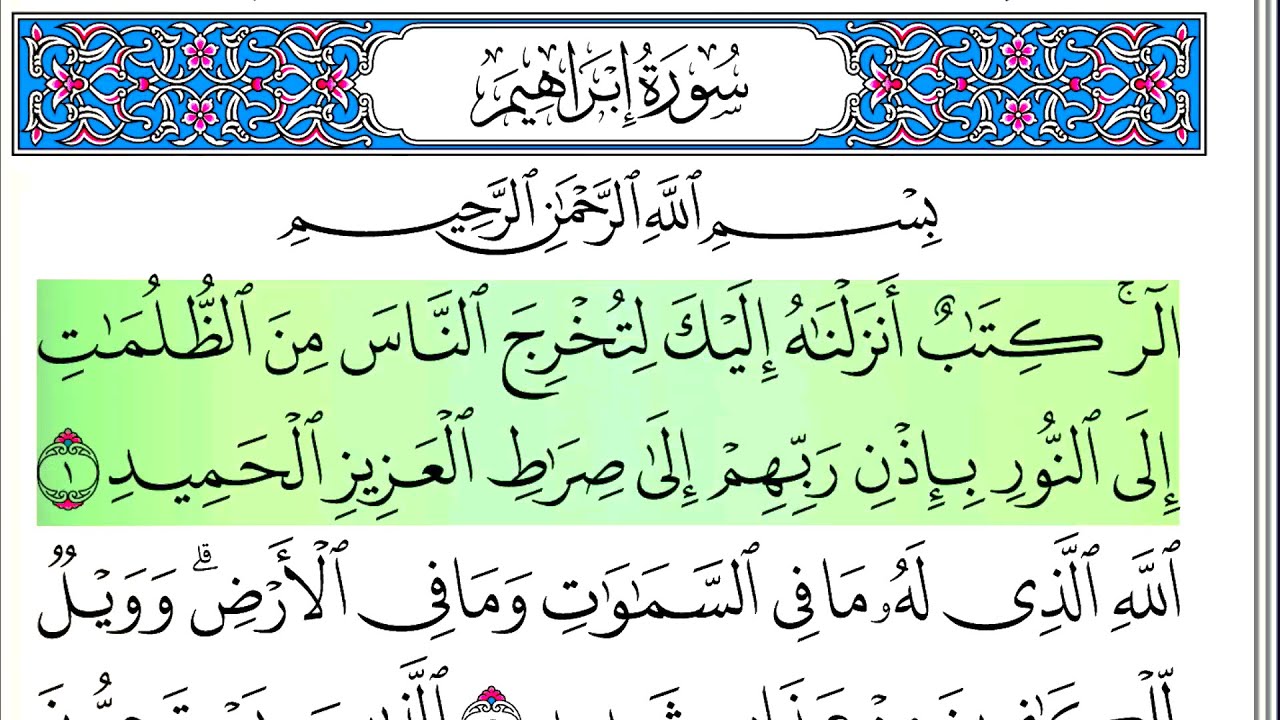 سُورَةُ إِبْرَاهِيمَ
بِسْمِ ٱللَّهِ ٱلرَّحْمَٰنِ ٱلرَّحِيمِ
الٓرۚ كِتَٰبٌ أَنزَلْنَٰهُ إِلَيْكَ لِتُخْرِجَ ٱلنَّاسَ مِنَ ٱلظُّلُمَٰتِ
إِلَى ٱلنُّورِ بِإِذْنِ رَبِّهِمْ إِلَىٰ صِرَٰطِ ٱلْعَزِيزِ ٱلْحَمِيدِ ١
ٱللَّهِ ٱلَّذِى لَهُۥ مَا فِى ٱلسَّمَٰوَٰتِ وَمَا فِى ٱلْأَرْضِۗ وَوَيْلٌ